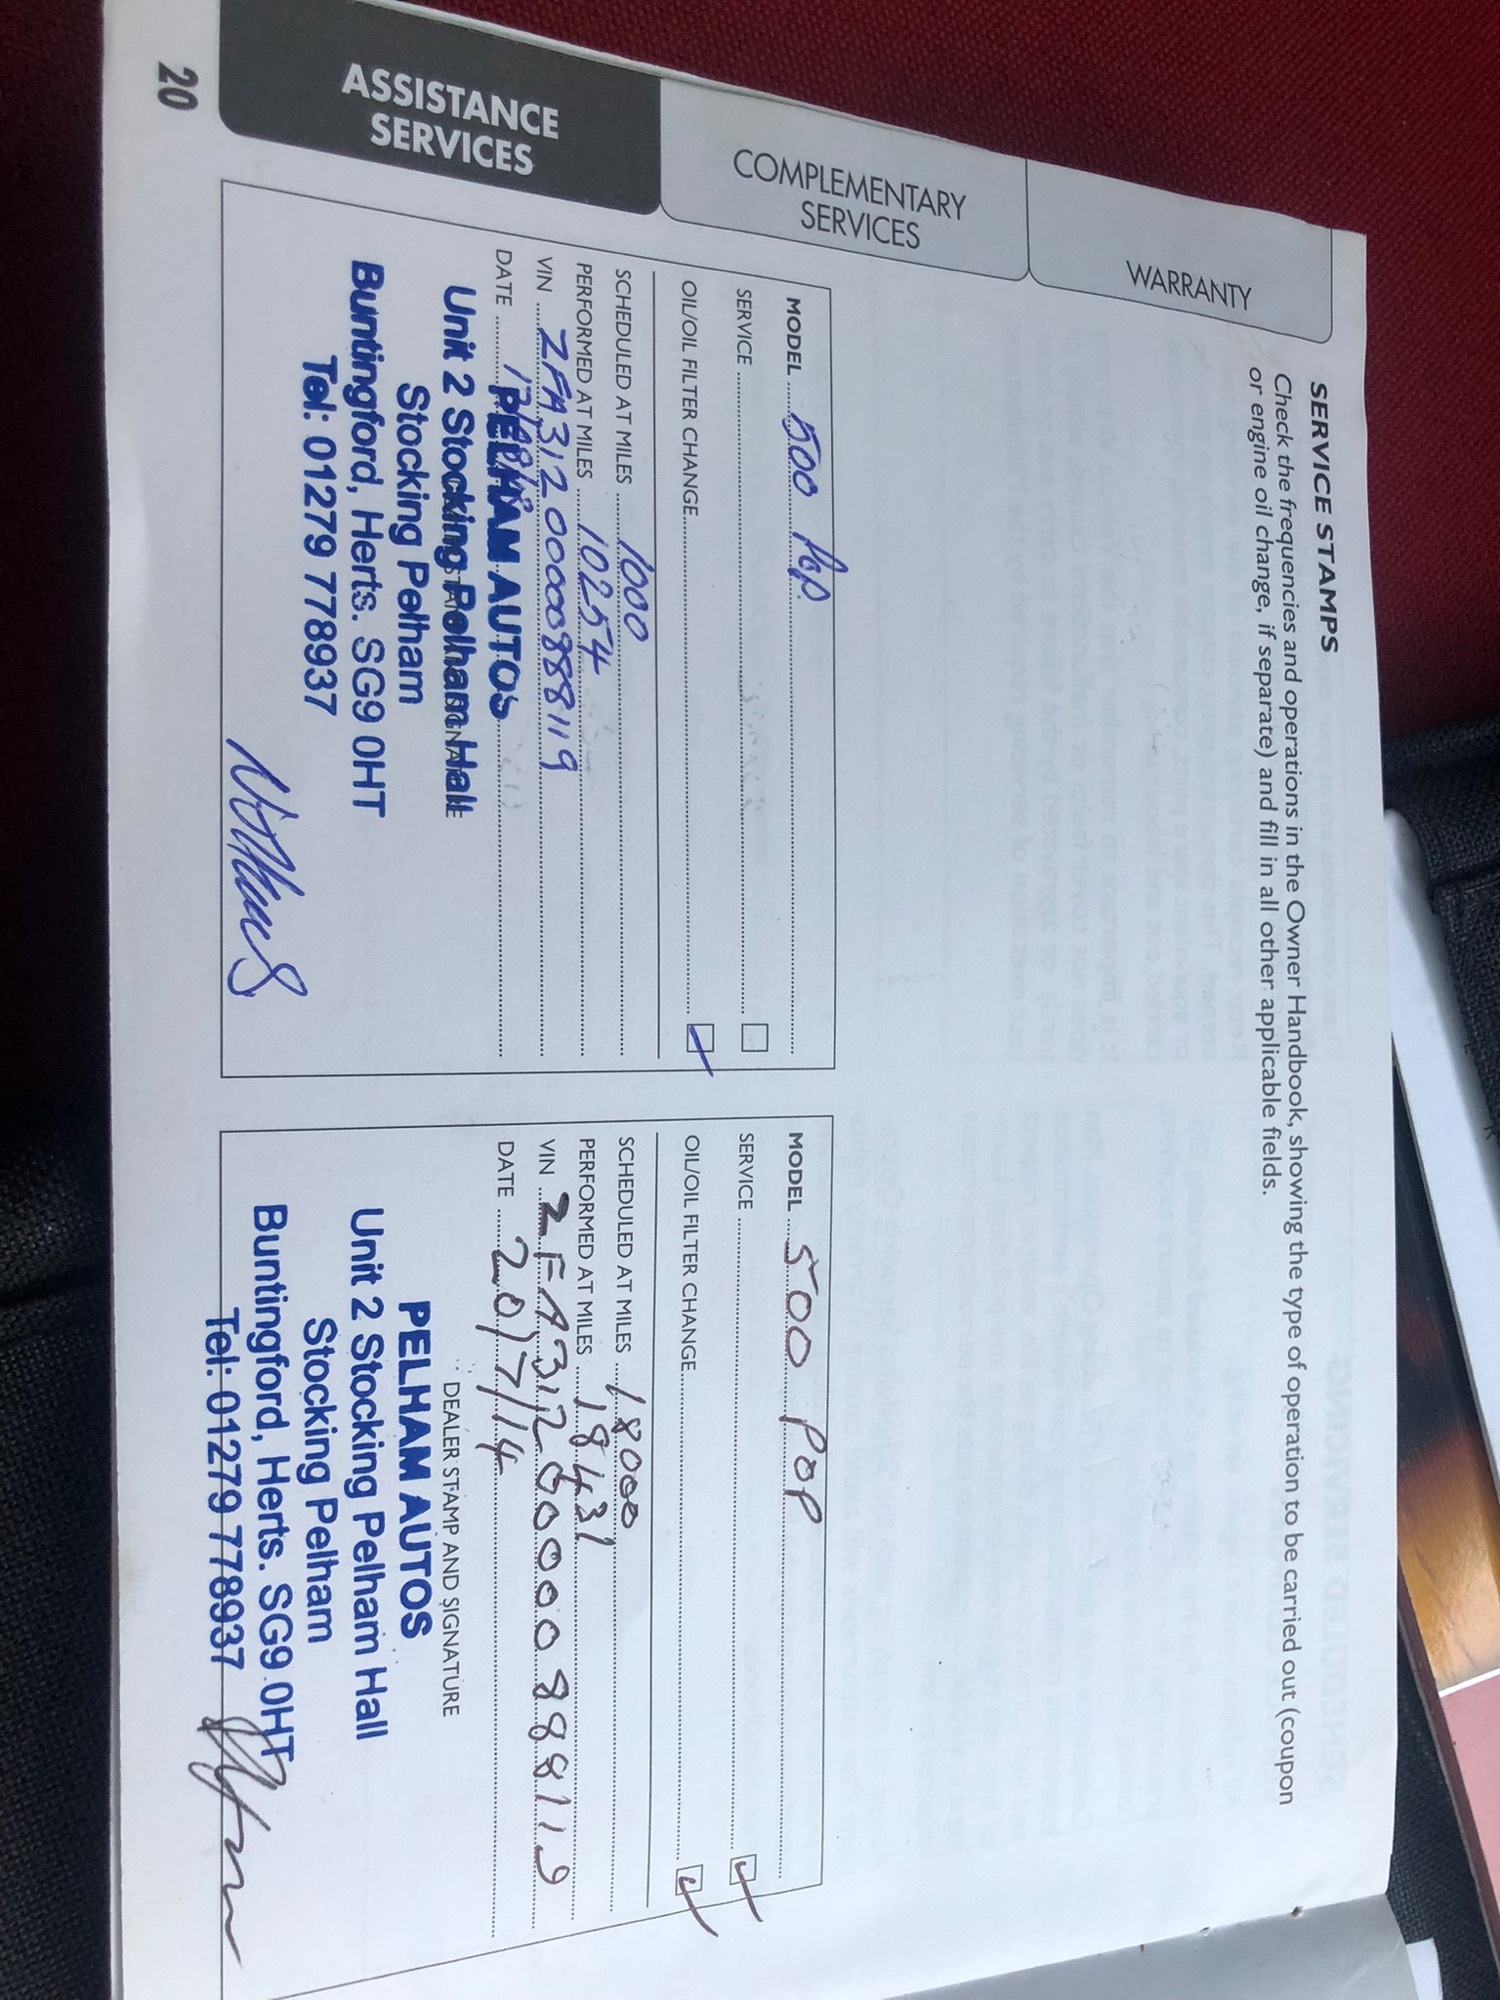 WARRANTY
COMPLEMENTARY
SERVICES
ASSISTANCE
SERVICES
SERVICE STAMPS
Check the frequencies and operations in the Owner Handbook, showing the type of operation to be carried out (coupon
or engine oil change, if separate) and fill in all other applicable fields.
MODEL 500 Pop
SERVICE
OIL/OIL FILTER CHANGE
SCHEDULED AT MILES 1000
PERFORMED AT MILES 10254
VIN ZFA3120000888119
DATE
PELHAM AUTOS
Unit 2 Stocking Pelham Hall
Stocking Pelham
Buntingford, Herts. SG9 0HT
Tel: 01279 778937
MODEL 500 POP
SERVICE
OIL/OIL FILTER CHANGE
SCHEDULED AT MILES 18000
PERFORMED AT MILES 18431
VIN ZFA3120000888119
DATE 20/7/14
DEALER STAMP AND SIGNATURE
PELHAM AUTOS
Unit 2 Stocking Pelham Hall
Stocking Pelham
Buntingford, Herts. SG9 0HT
Tel: 01279 778937
20